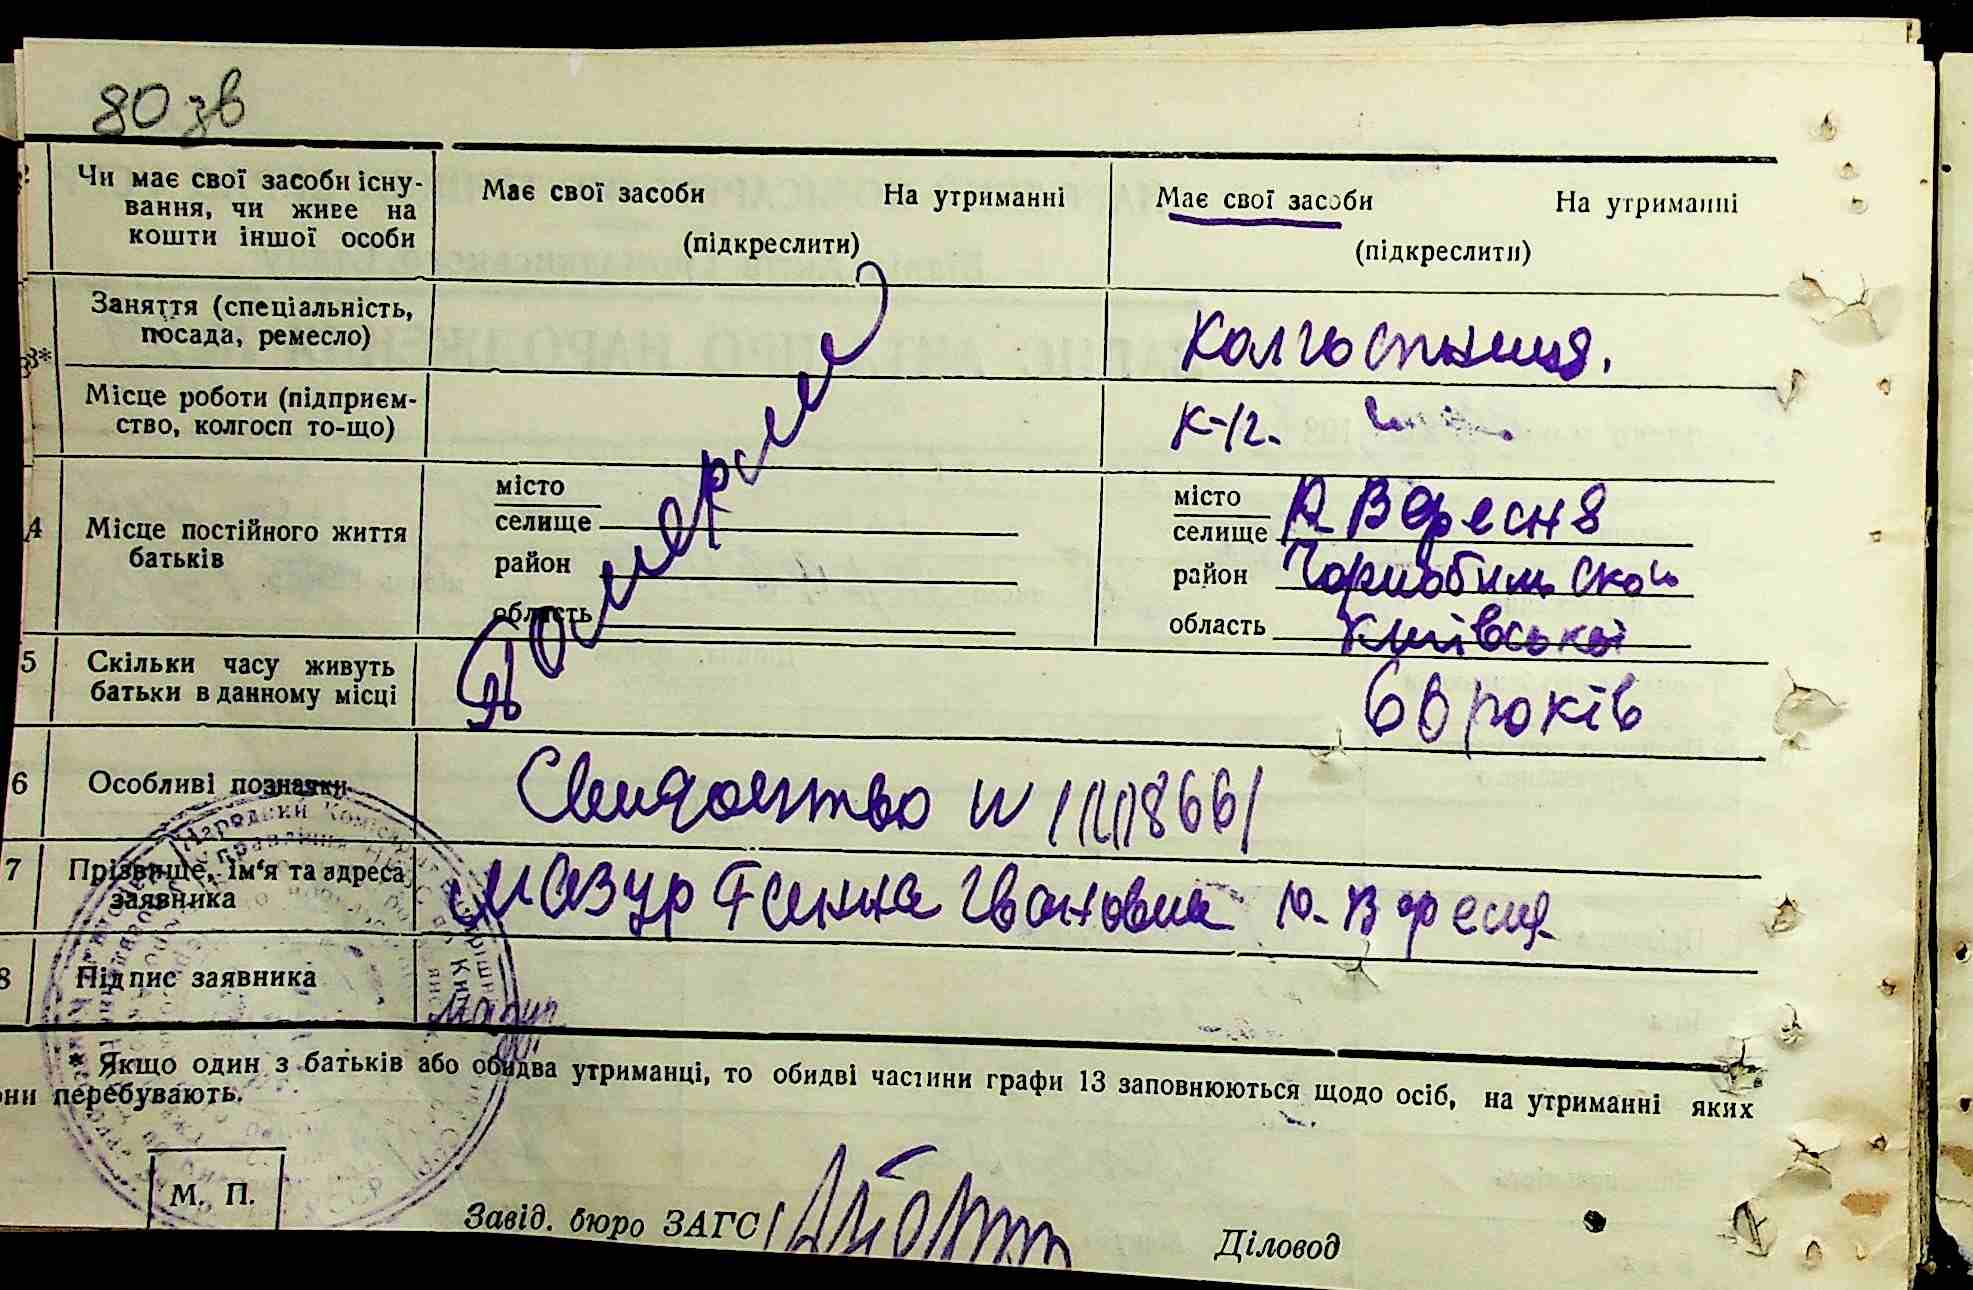 80 зв
Чи має свої засоби існу-
вання, чи живе на
кошти іншої особи
Має свої засоби На утриманні
(підкреслити)
Має свої засоби На утриманні
(підкреслити)
3*
Заняття (спеціальність,
посада, ремесло)
Колгоспниця.
Місце роботи (підприєм-
ство, колгосп то-що)
к-/г.
4
Місце постійного життя
батьків
місто
селище
район
область
місто
селище Вересня
район Чорнобильської
область Київської
5
Скільки часу живуть
батьки в данному місці
60 років
6
Особливі познаки
Свидоцтво N
7
Прізвище, ім‘я та адреса
заявника
Мазур Ганна Івановна
8
Підпис заявника
Мазур
* Якщо один з батьків або обидва утриманці, то обидві частини графи 13 заповнюються щодо осіб, на утриманні яких
они перебувають.
М. П.
Завід. бюро ЗАГС
Діловод